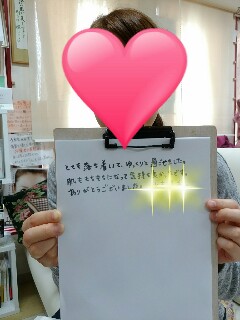 とても落ち着いて、ゆっくりと過ごせました。
肌ももちもちになって気持ちいいです。
ありがとうございました。